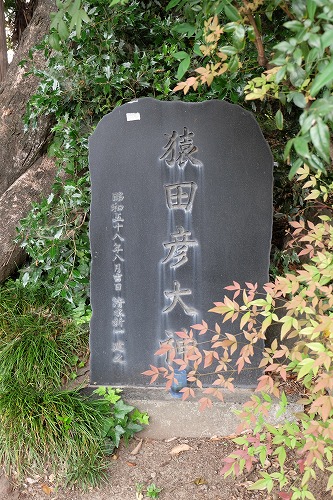 猿田彦大神
昭和五十八年八月吉日